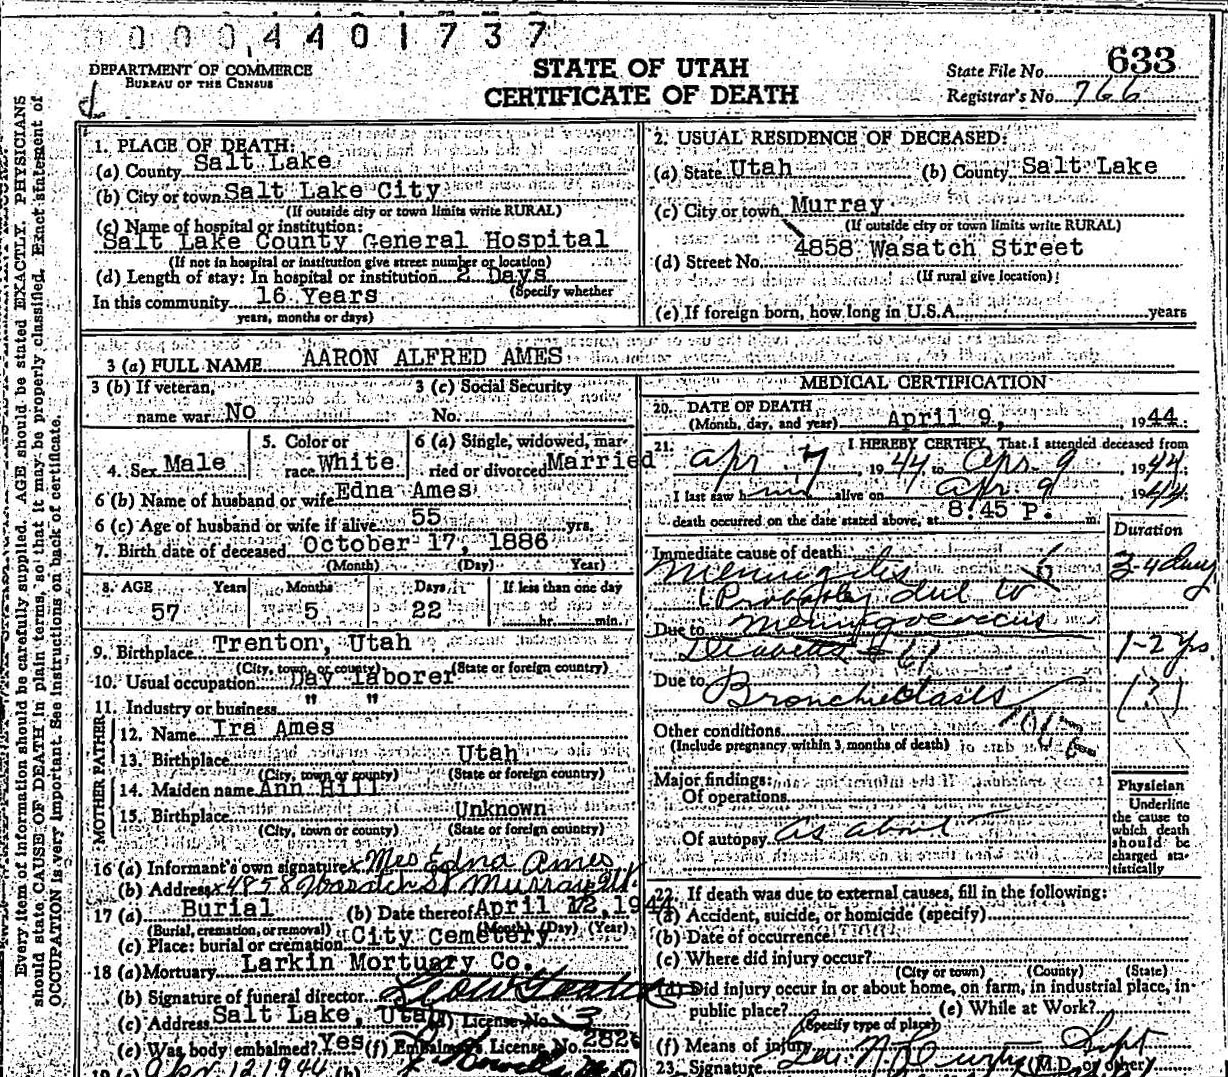 0 0 0 4 4 0 1 7 3 7
DEPARTMENT OF COMMERCE
BUREAU OF THE CENSUS
STATE OF UTAH
CERTIFICATE OF DEATH
State File No. 633
Registrar's No. 766
Every item of information should be carefully supplied. AGE should be stated EXACTLY. PHYSICIANS
should state CAUSE OF DEATH in plain terms, so that it may be properly classified. Exact statement of
OCCUPATION is very important. See instructions on back of certificate.
1. PLACE OF DEATH:
(a) County Salt Lake
(b) City or town Salt Lake City
(If outside city or town limits write RURAL)
(c) Name of hospital or institution:
Salt Lake County General Hospital
(If not in hospital or institution give street number or location)
(d) Length of stay: In hospital or institution 2 Days
(Specify whether
In this community 16 Years
years, months or days)
2. USUAL RESIDENCE OF DECEASED:
(a) State Utah (b) County Salt Lake
(c) City or town Murray
(If outside city or town limits write RURAL)
(d) Street No. 4858 Wasatch Street
(If rural give location)
(e) If foreign born, how long in U.S.A. years
3 (a) FULL NAME AARON ALFRED AMES
3 (b) If veteran, 3 (c) Social Security
name war No No.
4. Sex Male 5. Color or race White 6 (a) Single, widowed, married or divorced Married
6 (b) Name of husband or wife Edna Ames
6 (c) Age of husband or wife if alive 55 yrs.
7. Birth date of deceased October 17, 1886
(Month) (Day) Year)
8. AGE Years Months Days If less than one day
57 5 22 hr. min.
9. Birthplace Trenton, Utah
(City, town, or county) (State or foreign country)
10. Usual occupation Day laborer
11. Industry or business " "
FATHER
12. Name Ira Ames
13. Birthplace Utah
(City, town or county) (State or foreign country)
MOTHER
14. Maiden name Ann Hill
15. Birthplace Unknown
(City, town or county) (State or foreign country)
16 (a) Informant's own signature x Mrs Edna Ames
(b) Address x 4858 Wasatch St Murray Ut.
17 (a) Burial (b) Date thereof April 12, 1944
(Burial, cremation, or removal) (Month) (Day) (Year)
(c) Place: burial or cremation City Cemetery
18 (a) Mortuary Larkin Mortuary Co.
(b) Signature of funeral director
(c) Address Salt Lake, Utah License No. 3
(e) Was body embalmed? Yes (f) Embalmer's License No. 282
19 (a) Apr 12 1944 (b)
MEDICAL CERTIFICATION
20. DATE OF DEATH
(Month, day, and year) April 9, 1944
21. I HEREBY CERTIFY, That I attended deceased from
Apr. 7, 1944 to Apr. 9 1944
I last saw him alive on Apr. 9, 1944
death occurred on the date stated above, at 8:45 P. m
Duration
Immediate cause of death
Meningitis 6 3-4 days
(Probably due to
Due to meningococcus
Diabetes # 61 1-2 yrs.
Due to Bronchiectasis (?)
Other conditions
(Include pregnancy within 3 months of death)
Major findings:
Of operations
Of autopsy As above
Physician
Underline
the cause to
which death
should be
charged sta-
tistically
22. If death was due to external causes, fill in the following:
(a) Accident, suicide, or homicide (specify)
(b) Date of occurrence
(c) Where did injury occur?
(City or town) (County) (State)
(d) Did injury occur in or about home, on farm, in industrial place, in
public place? (e) While at Work?
(Specify type of place)
(f) Means of injury Supt
23. Signature (M.D. or other)